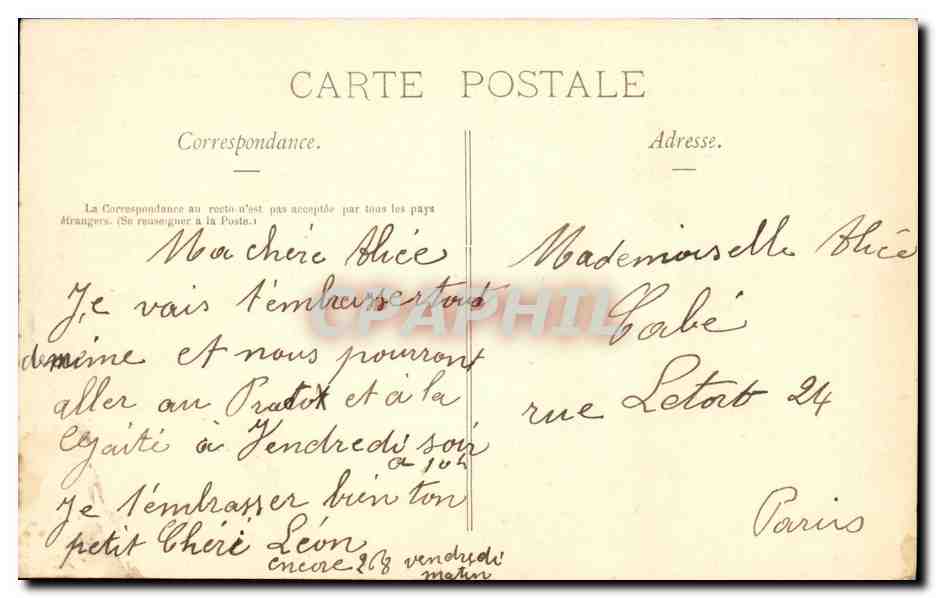 CARTE POSTALE
Correspondance.
La Correspondance au recto n'est pas acceptée par tous les pays
étrangers. (Se renseigner à la Poste.)
Ma chére Alice
Je vais t'embrasser tout
de même et nous pourront
aller au et à la
Gaité à Vendredi soir
a 10h
Je t'embrasser bien ton
petit Chéri Léon
encore 268 vendredi
matin
Adresse.
Mademoiselle Alice
Cabé
rue Letort 24
Paris
CPAPHIL